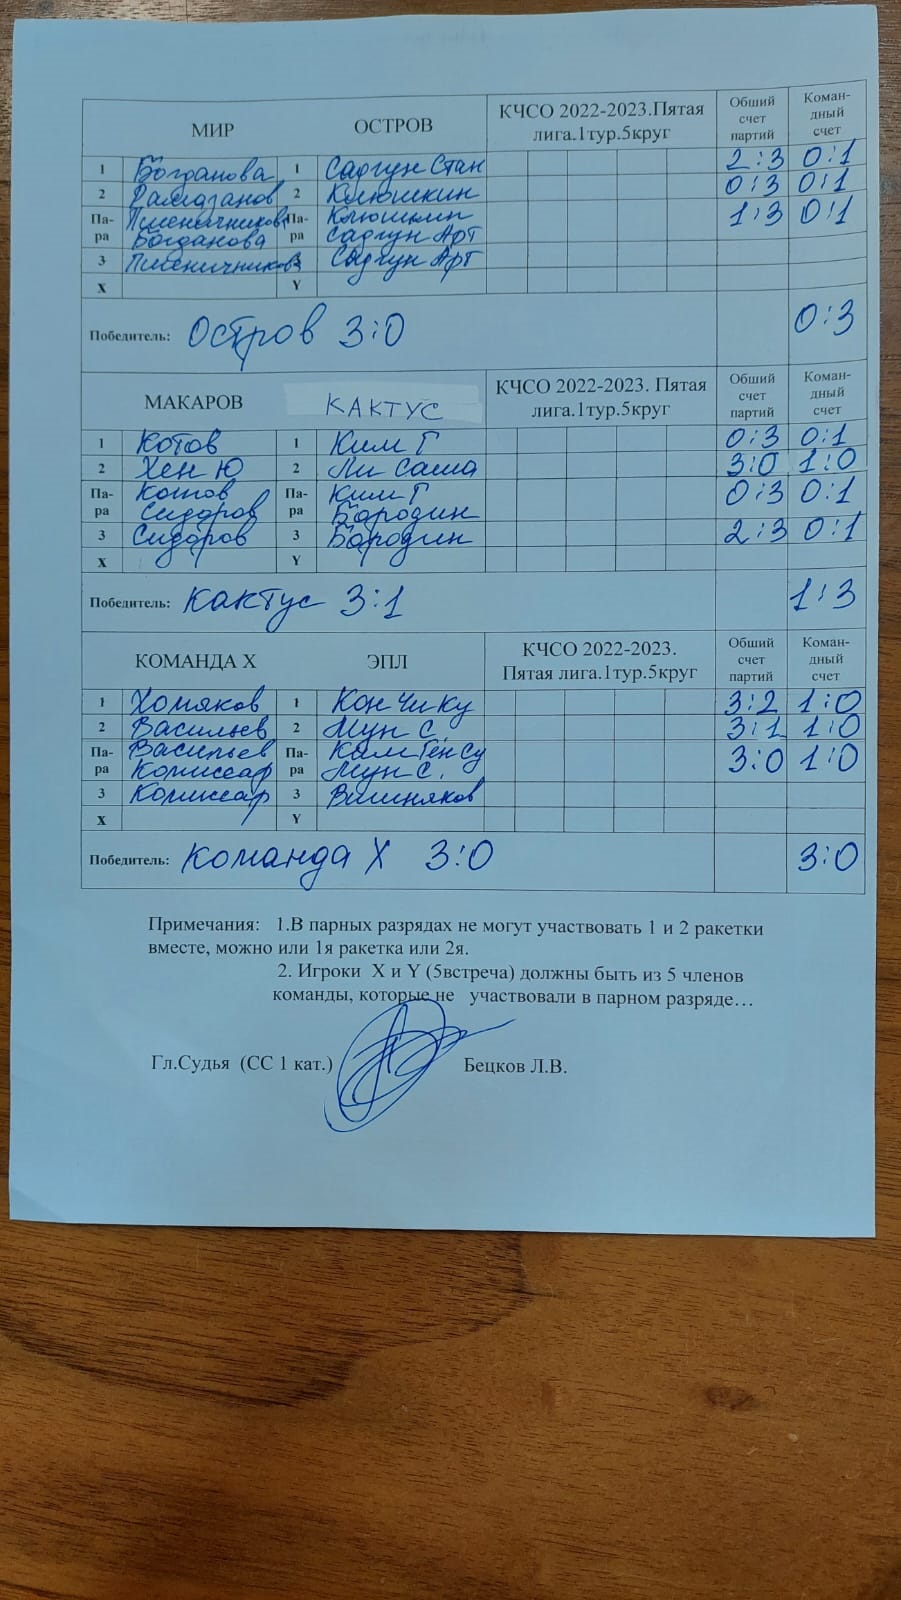 МИР ОСТРОВ КЧСО 2022-2023.Пятая лига.1тур.5круг Общий счет партий Коман-дный счет
1 Богданова 1 Садгун Стан 2:3 0:1
2 Рамазанов 2 Клюшкин 0:3 0:1
Па-ра Пшеничникова Па-ра Клюшкин 1:3 0:1
Богданова Садгун Арт
3 Пшеничникова 3 Садгун Арт
X Y
Победитель: Остров 3:0 0:3
МАКАРОВ КАКТУС КЧСО 2022-2023. Пятая лига.1тур.5круг Общий счет партий Коман-дный счет
1 Котов 1 Ким Г 0:3 0:1
2 Хен Ю 2 Ли Саша 3:0 1:0
Па-ра Котов Па-ра Ким Г 0:3 0:1
Сидоров Бородин
3 Сидоров 3 Бородин 2:3 0:1
X Y
Победитель: Кактус 3:1 1:3
КОМАНДА X ЭПЛ КЧСО 2022-2023. Пятая лига.1тур.5круг Общий счет партий Коман-дный счет
1 Хомяков 1 Кон Чи Ку 3:2 1:0
2 Васильев 2 Мун С. 3:1 1:0
Па-ра Васильев Па-ра Ким Ген Су 3:0 1:0
Комиссар Мун С.
3 Комиссар 3 Вишняков
X Y
Победитель: Команда X 3:0 3:0
Примечания: 1.В парных разрядах не могут участвовать 1 и 2 ракетки
вместе, можно или 1я ракетка или 2я.
2. Игроки X и Y (5встреча) должны быть из 5 членов
команды, которые не участвовали в парном разряде…
Гл.Судья (СС 1 кат.) Бецков Л.В.